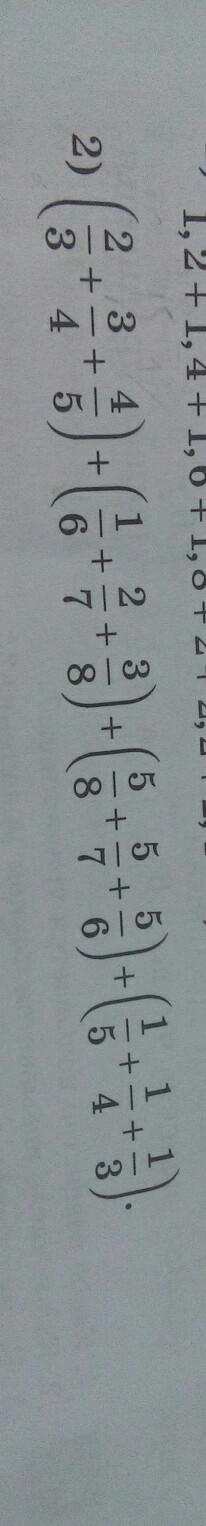 1,2+1,4+1,6+1,8+2
2) (2/3 + 3/4 + 4/5) + (1/6 + 2/7 + 3/8) + (5/8 + 5/7 + 5/6) + (1/5 + 1/4 + 1/3).